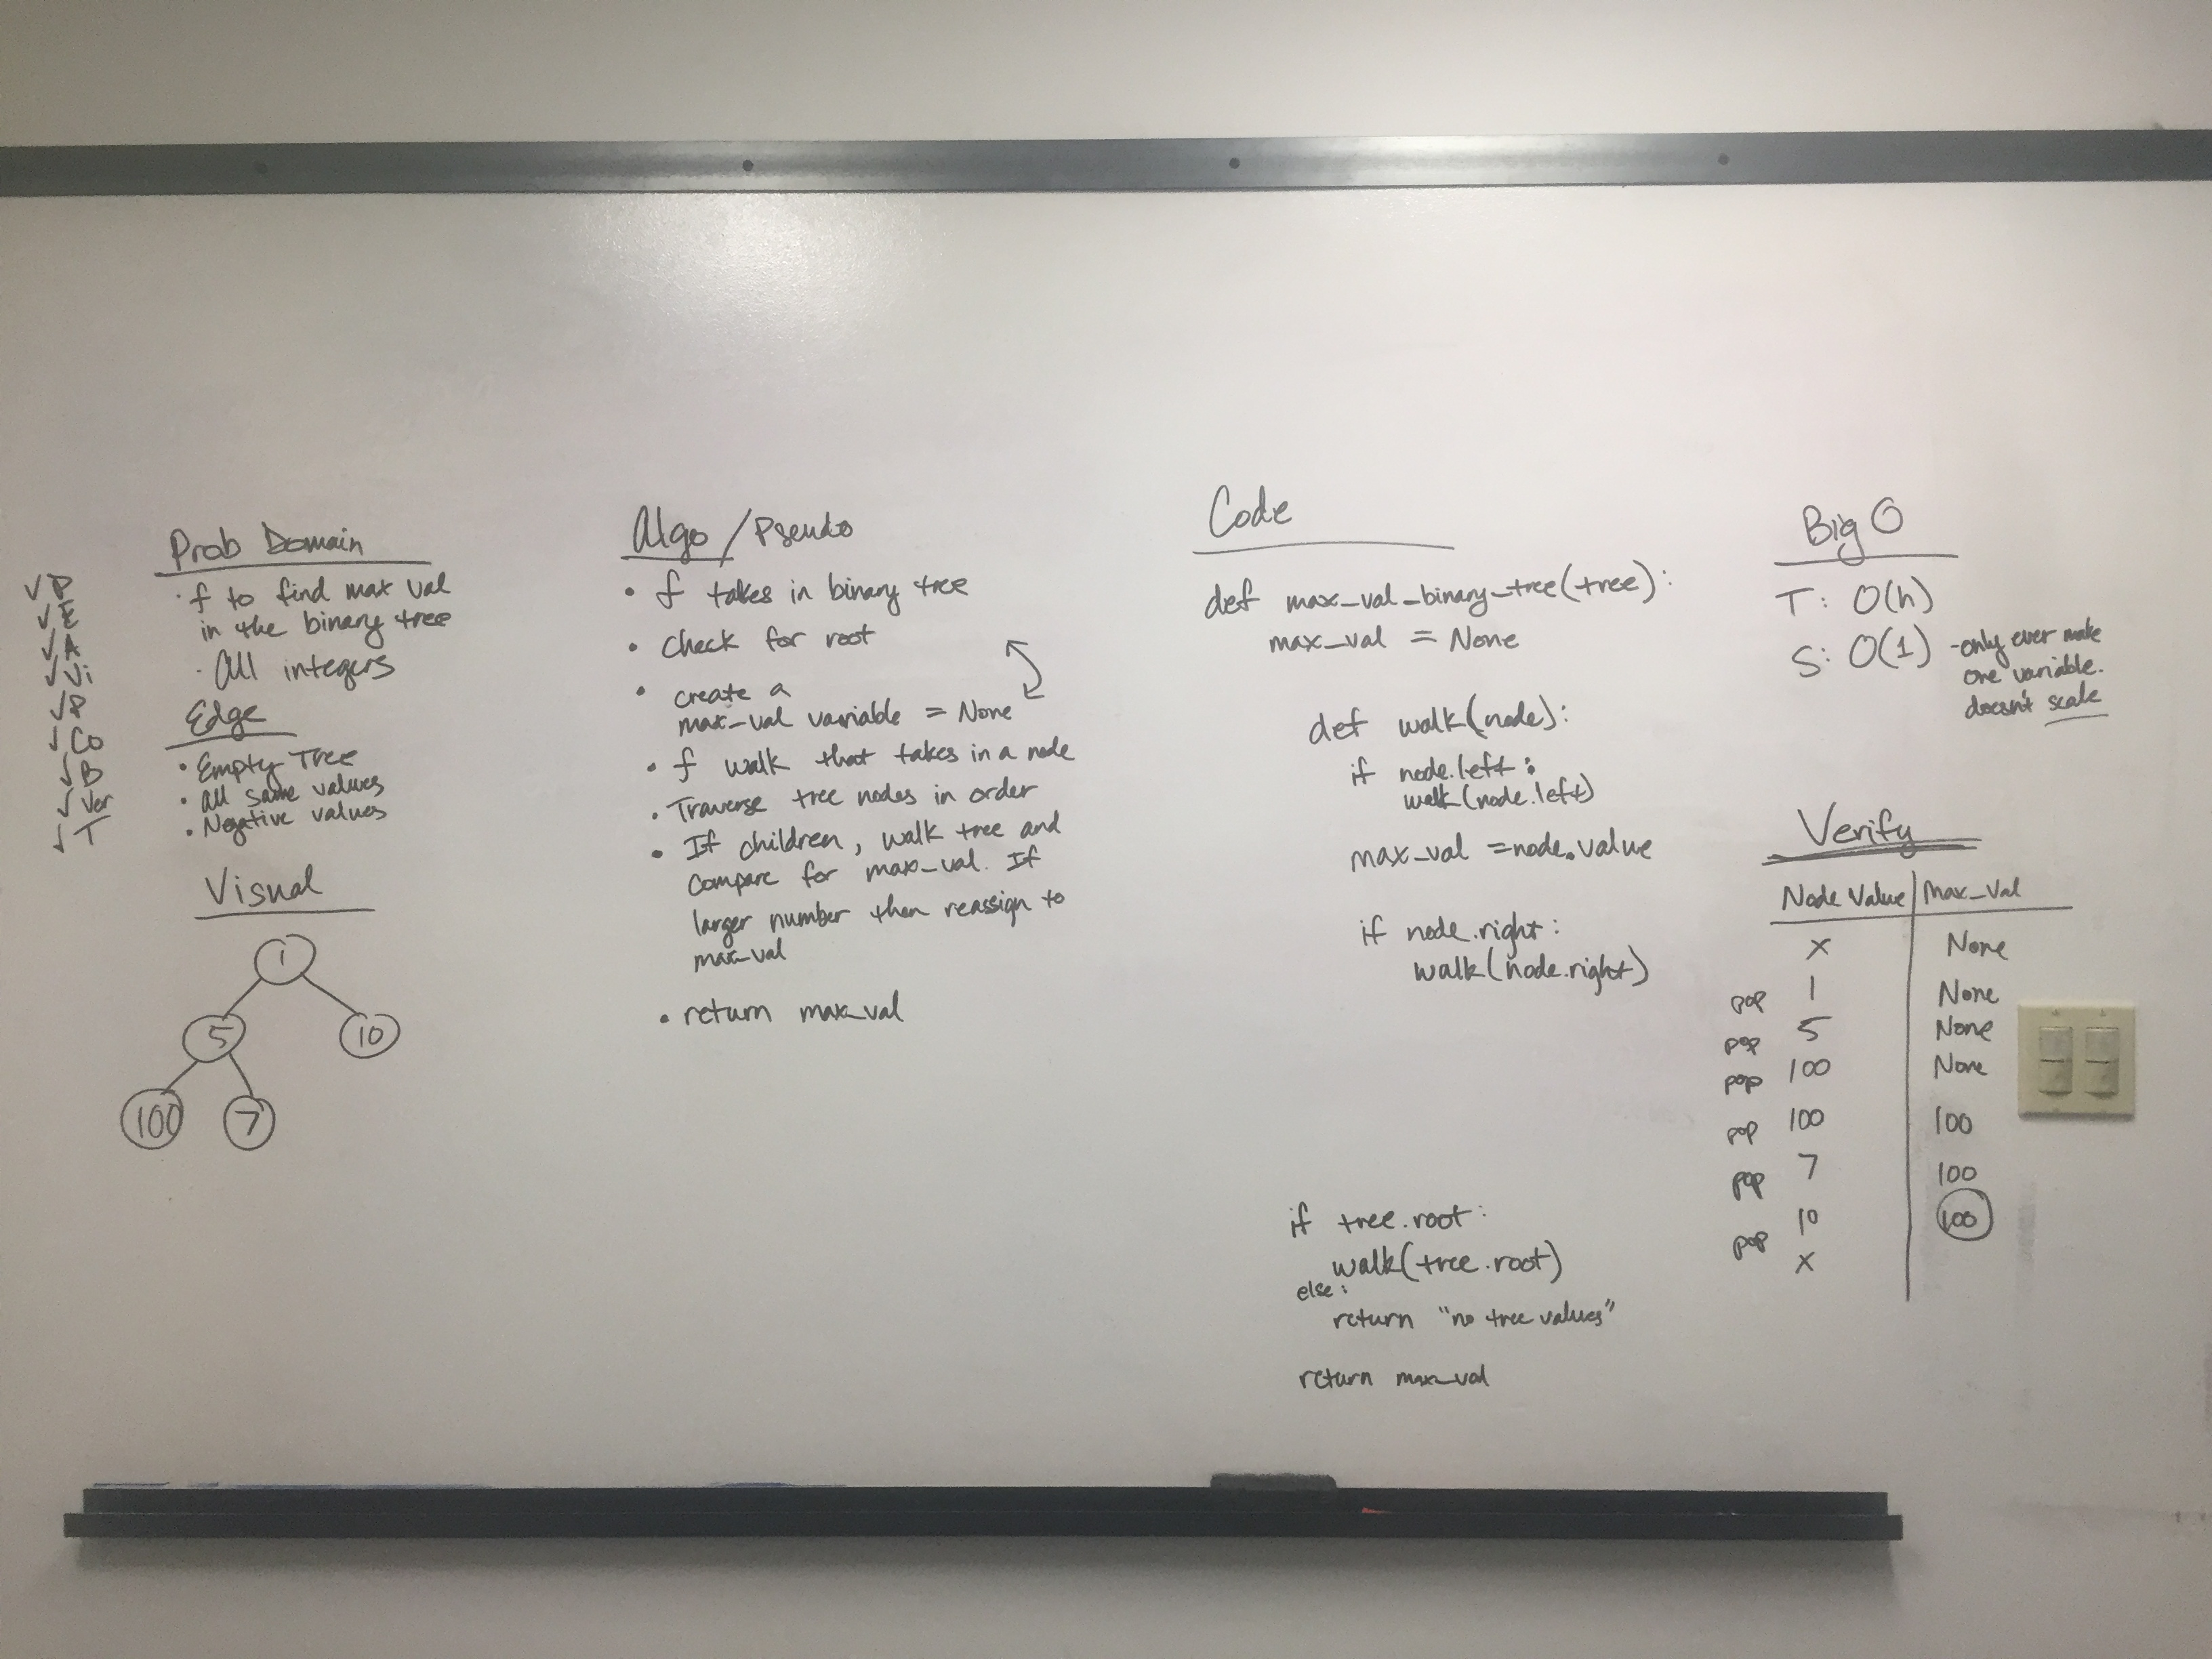 ✓P
✓E
✓A
✓Vi
✓P
✓Co
✓B
✓Ver
✓T
Prob Domain
· f to find max val
in the binary tree
· All integers
Edge
• Empty Tree
• All same values
• Negative values
Visual
1
5 10
100 7
Algo / Pseudo
• f takes in binary tree
• Check for root
• create a
max_val variable = None
• f walk that takes in a node
• Traverse tree nodes in order
• If children, walk tree and
compare for max_val. If
larger number then reassign to
max_val
• return max_val
Code
def max_val_binary_tree(tree):
max_val = None
def walk(node):
if node.left:
walk(node.left)
max_val = node.value
if node.right:
walk(node.right)
if tree.root:
walk(tree.root)
else:
return "no tree values"
return max_val
Big O
T: O(n)
S: O(1) - only ever make
one variable.
doesn't scale
Verify
Node Value Max_Val
x None
1 None
pop
5 None
pop
100 None
pop
100 100
pop
7 100
pop
10 100
pop
x